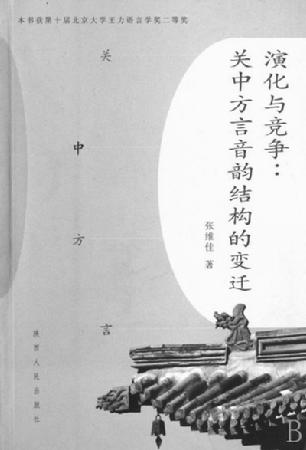 本书获第十届北京大学王力语言学奖二等奖
演化与竞争:
关中方言音韵结构的变迁
张维佳 著
关中方言
陕西人民出版社
B